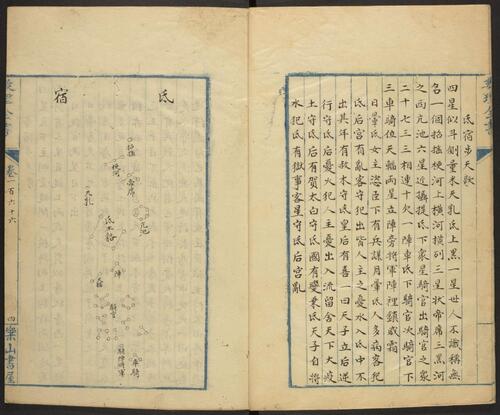 氐宿步天歌
四星似斗側量米天乳氐上黑一星世人不識稱無
名一個招搖梗河上橫河橫列三星狀帝席三黑河
之西亢池六星近攝提氐下眾星騎官出騎官之眾
二十七三三相連十欠一陣車氐下騎官次騎官下
三車騎位天輻兩星立陣旁將軍陣裡鎮威霜
日暈氐女主恣臣下有兵謀月暈氐人多病客犯
氐后宮有亂客守犯出皆人主之憂水入氐中不
出其年有赦木守氐皇后有喜一曰天子立后逆
行守氐后憂火犯人主憂出入流留舍天下大疫
土守氐后有賀太白守氐國有變乘氐天子自將
水犯氐有獄事客星守氐后宮亂
氐宿
招搖
梗河
帝席
亢池
天乳
氐土貉
陣
騎官
車騎
騎陣將軍
卷一百六十六
四
樂山書屋